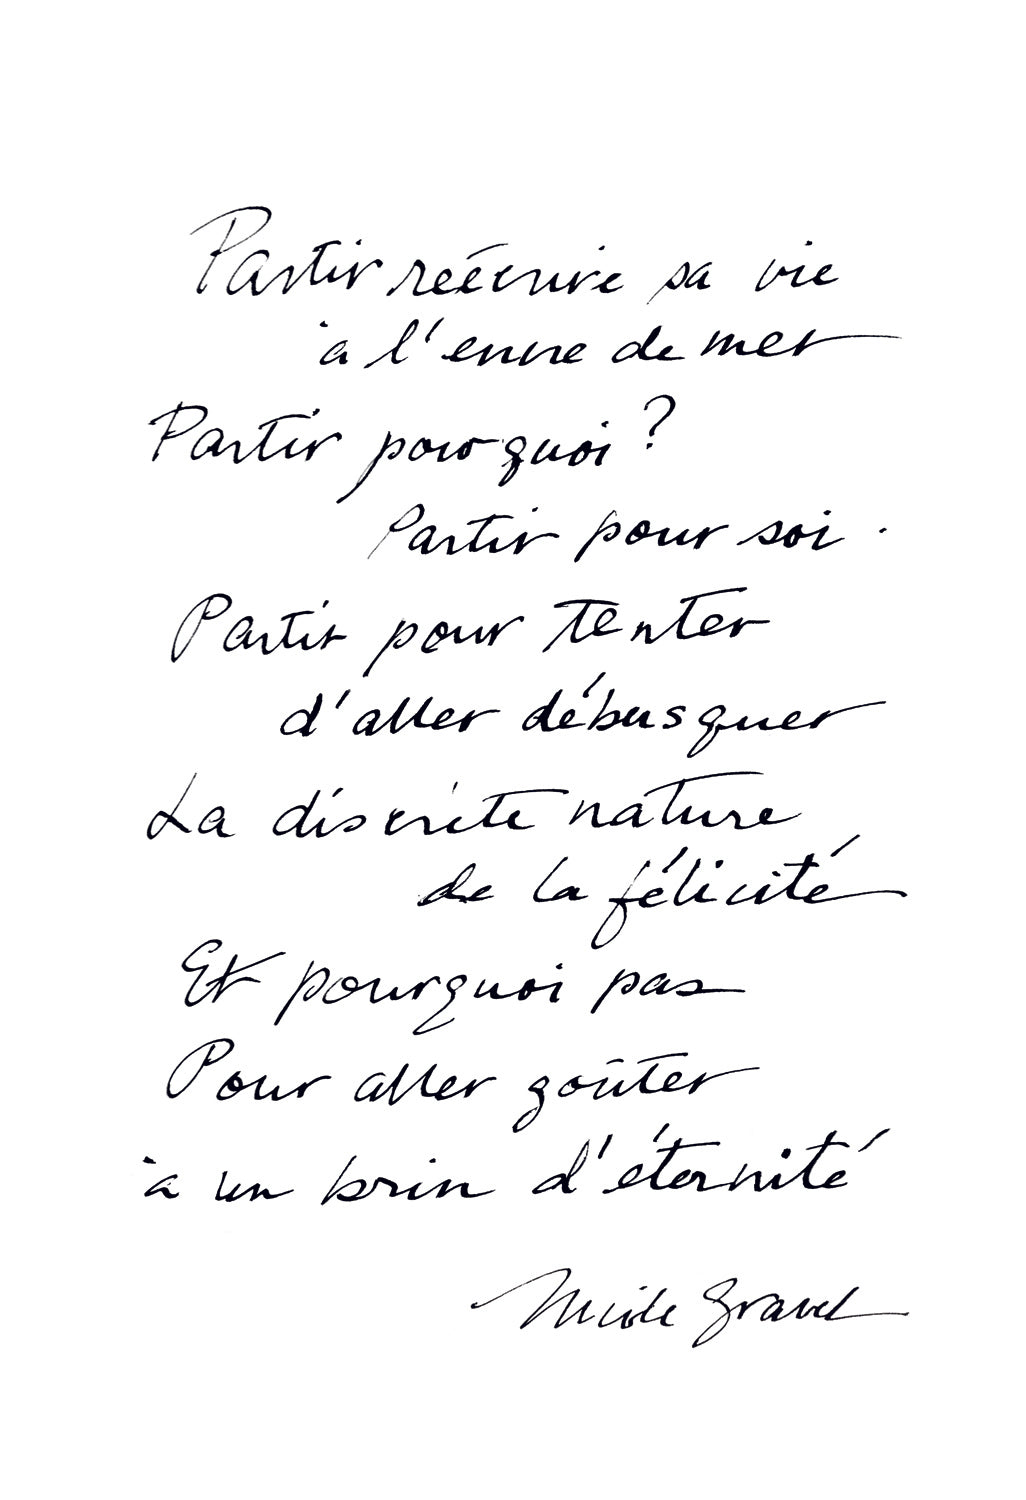 Partir réécrire sa vie
à l'encre de mer
Partir pourquoi ?
Partir pour soi .
Partir pour tenter
d'aller débusquer
La discrète nature
de la félicité
Et pourquoi pas
Pour aller goûter
à un brin d'éternité
Nicole Gravel